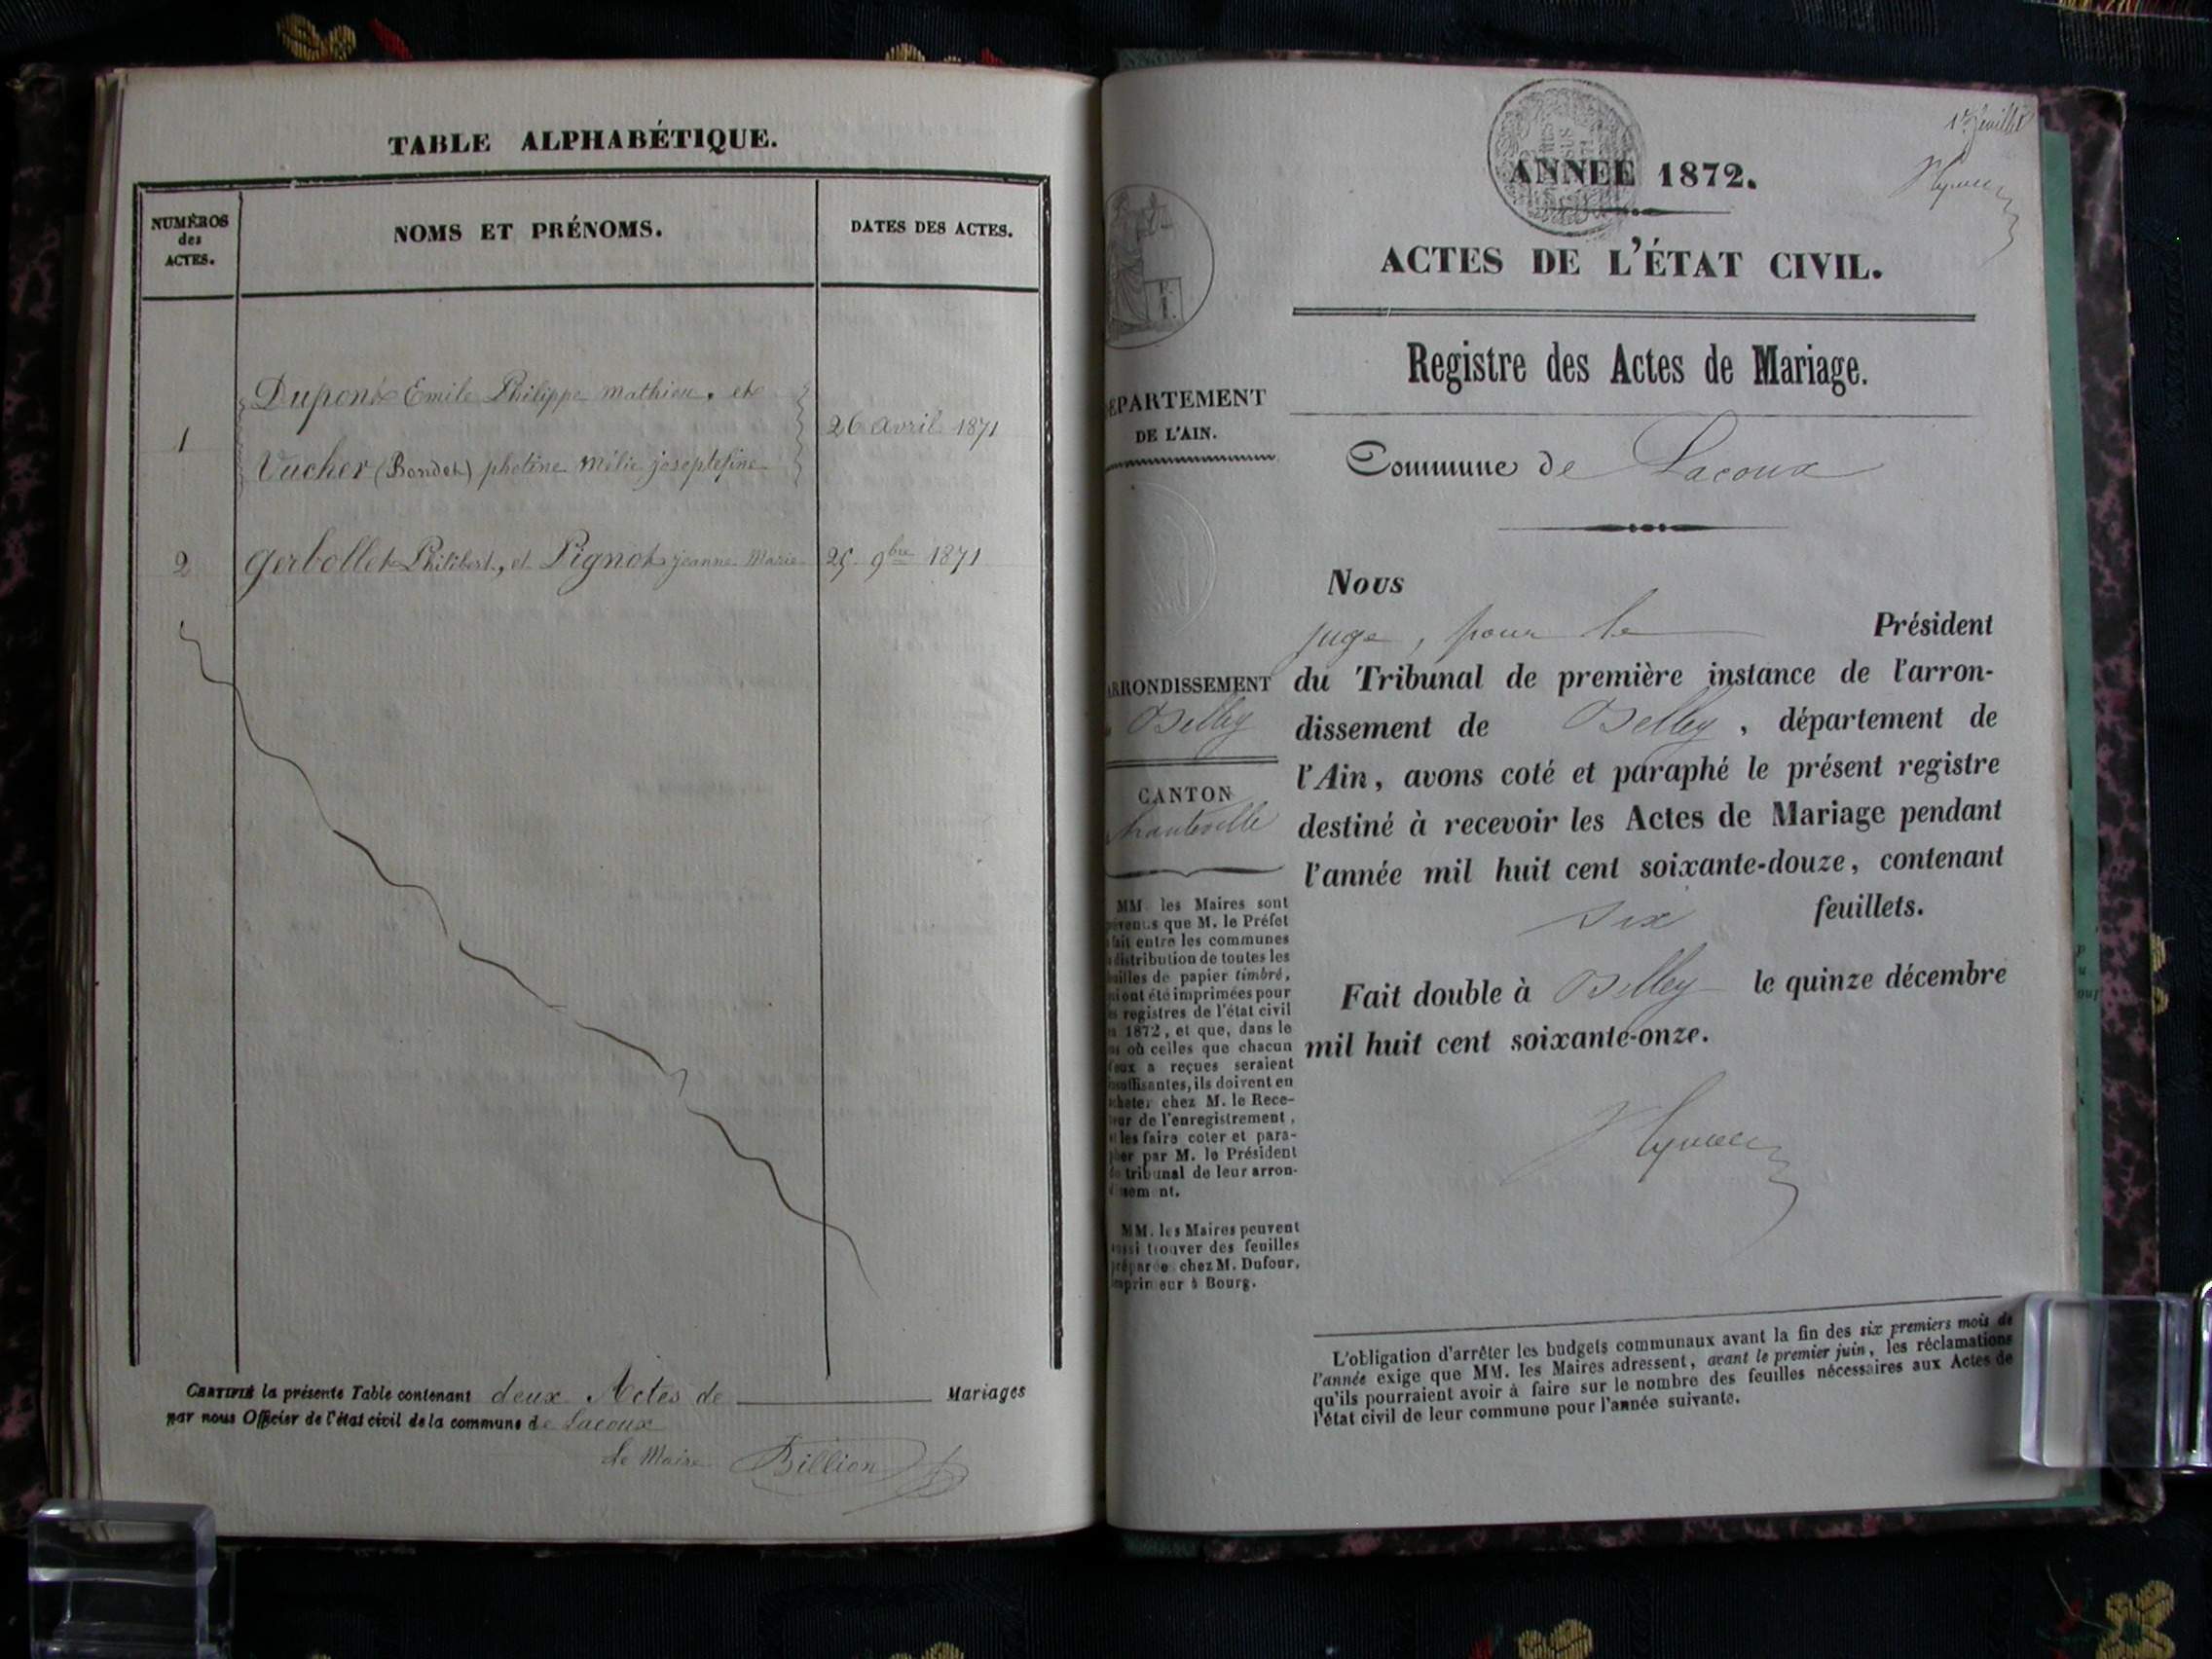 TABLE ALPHABÉTIQUE.
NUMÉROS
des
ACTES.
NOMS ET PRÉNOMS.
DATES DES ACTES.
Dupont Emile Philippe Mathieu, et
1
26 avril 1871
Vucher (Bondet) photine Mélie josephine
2 Gerbollet Philibert, et Pignot jeanne Marie 25 9bre 1871
CERTIFIÉ la présente Table contenant deux Actes de Mariages
par nous Officier de l'état civil de la commune de Lacoux
Le Maire Billion
1er feuillet
ANNÉE 1872.
ACTES DE L'ÉTAT CIVIL.
Registre des Actes de Mariage.
Commune de Lacoux
EPARTEMENT
DE L'AIN.
ARRONDISSEMENT
Belley
CANTON
hauteville
MM. les Maires sont
prévenus que M. le Préfet
fait entre les communes
distribution de toutes les
feuilles de papier timbré,
qui ont été imprimées pour
les registres de l'état civil
1872, et que, dans le
cas où celles que chacun
d'eux a reçues seraient
insuffisantes, ils doivent en
acheter chez M. le Rece-
veur de l'enregistrement,
et les faire coter et para-
pher par M. le Président
du tribunal de leur arron-
dissement.
MM. les Maires peuvent
aussi trouver des feuilles
préparées chez M. Dufour,
imprimeur à Bourg.
Nous
juge, pour le Président
du Tribunal de première instance de l'arron-
dissement de Belley, département de
l'Ain, avons coté et paraphé le présent registre
destiné à recevoir les Actes de Mariage pendant
l'année mil huit cent soixante-douze, contenant
six feuillets.
Fait double à Belley le quinze décembre
mil huit cent soixante-onze.
L'obligation d'arrêter les budgets communaux avant la fin des six premiers mois de
l'année exige que MM. les Maires adressent, avant le premier juin, les réclamations
qu'ils pourraient avoir à faire sur le nombre des feuilles nécessaires aux Actes de
l'état civil de leur commune pour l'année suivante.